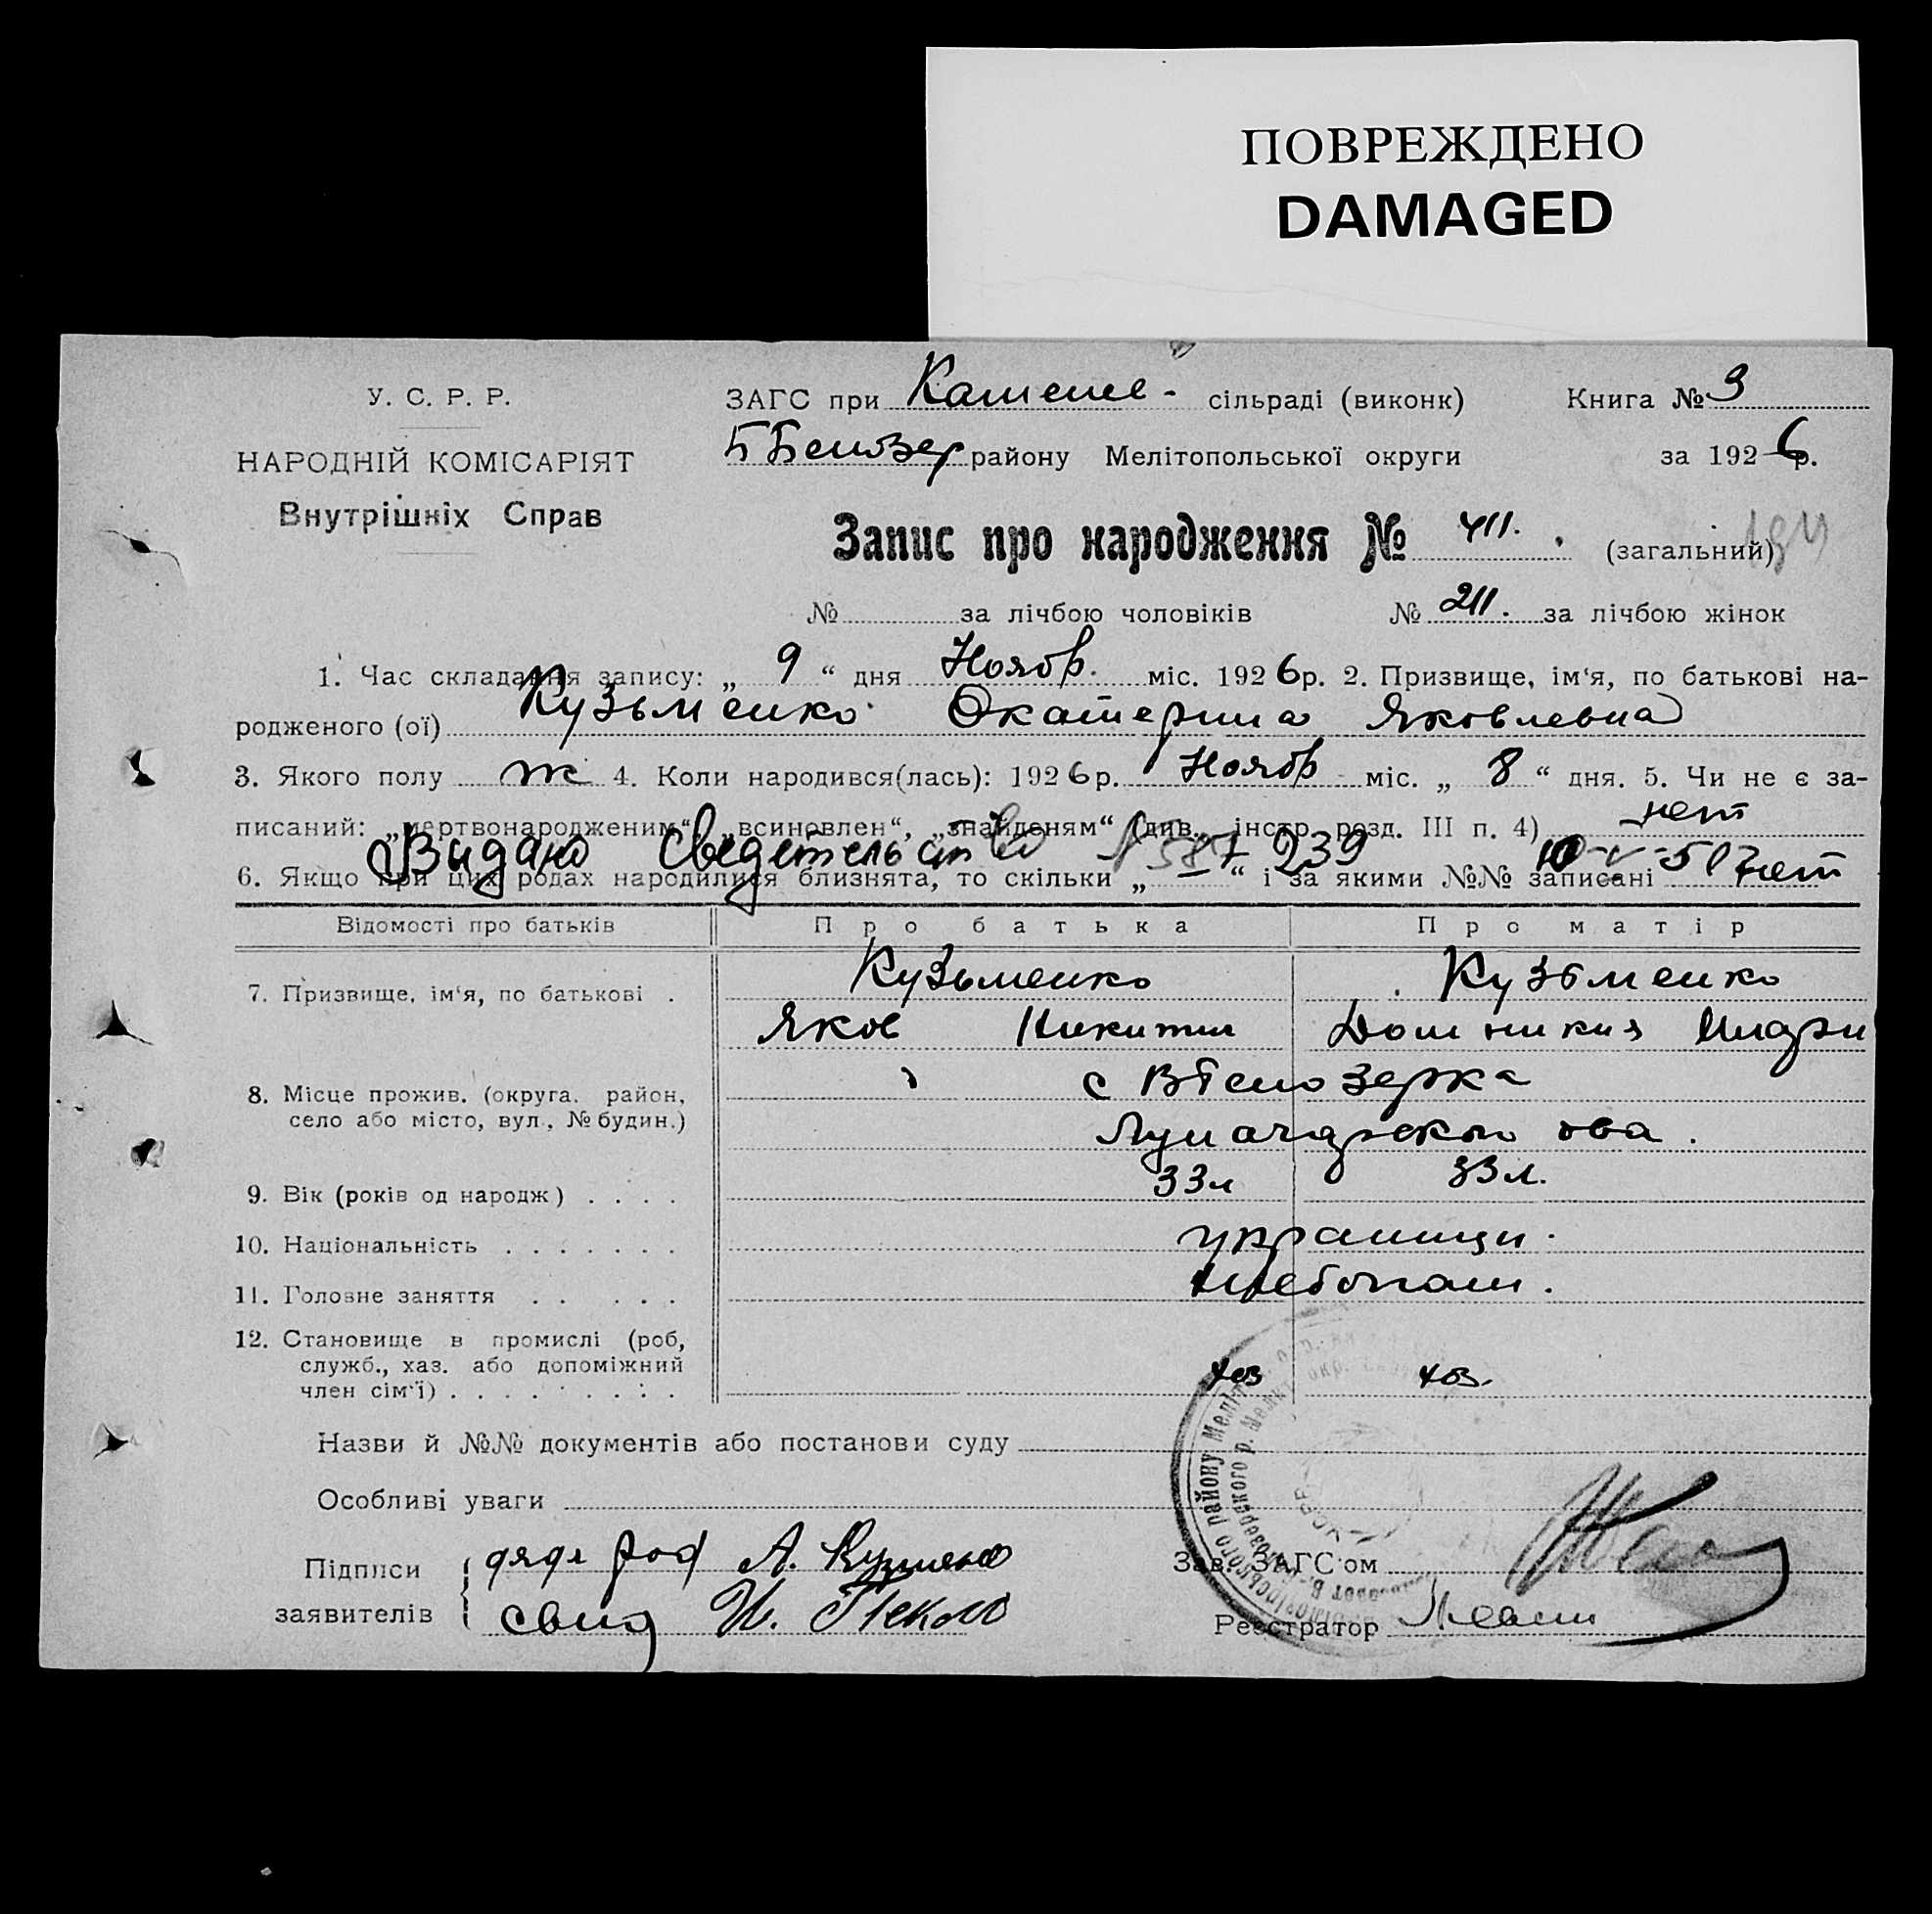 ПОВРЕЖДЕНО
DAMAGED
У. С. Р. Р.
НАРОДНІЙ КОМІСАРІЯТ
Внутрішніх Справ
ЗАГС при сільраді (виконк) Книга № 3
району Мелітопольської округи за 1926 р.
Запис про народження № 411. (загальний)
№ за лічбою чоловіків № 211. за лічбою жінок
1. Час складання запису: „ 9 “ дня Ноябр. міс. 1926 р. 2. Призвище, ім‘я, по батькові на-
родженого (ої) Кузьменко Екатерина Яковлевна
3. Якого полу ж 4. Коли народився(лась): 1926 р. Ноябр міс. „ 8 “ дня. 5. Чи не є за-
писаний: „мертвонародженим“, „всиновлен“, „знайденям“ (див. інстр. розд. III п. 4) нет
Выдано Сведетельство 239
6. Якщо при цих родах народилися близнята, то скільки „ – “ і за якими №№ записані нет
Відомості про батьків Про батька Про матір
7. Призвище, ім‘я, по батькові . Кузьменко Кузьменко
Яков Никитич Домникия
8. Місце прожив. (округа, район, село або місто, вул., № будин.) с В Белозерка
Луначарского
9. Вік (років од народж) . . . . 33л 33л.
10. Національність . . . . . . . украинци.
11. Головне заняття . . . . . хлебопаш.
12. Становище в промислі (роб, служб., хаз. або допоміжний член сім‘ї) . . . . . . . . . хоз хоз.
Назви й №№ документів або постанови суду
Особливі уваги
Підписи заявителів дядя род А. Кузменко
свид И.
Зав. ЗАГС‘ом
Реєстратор